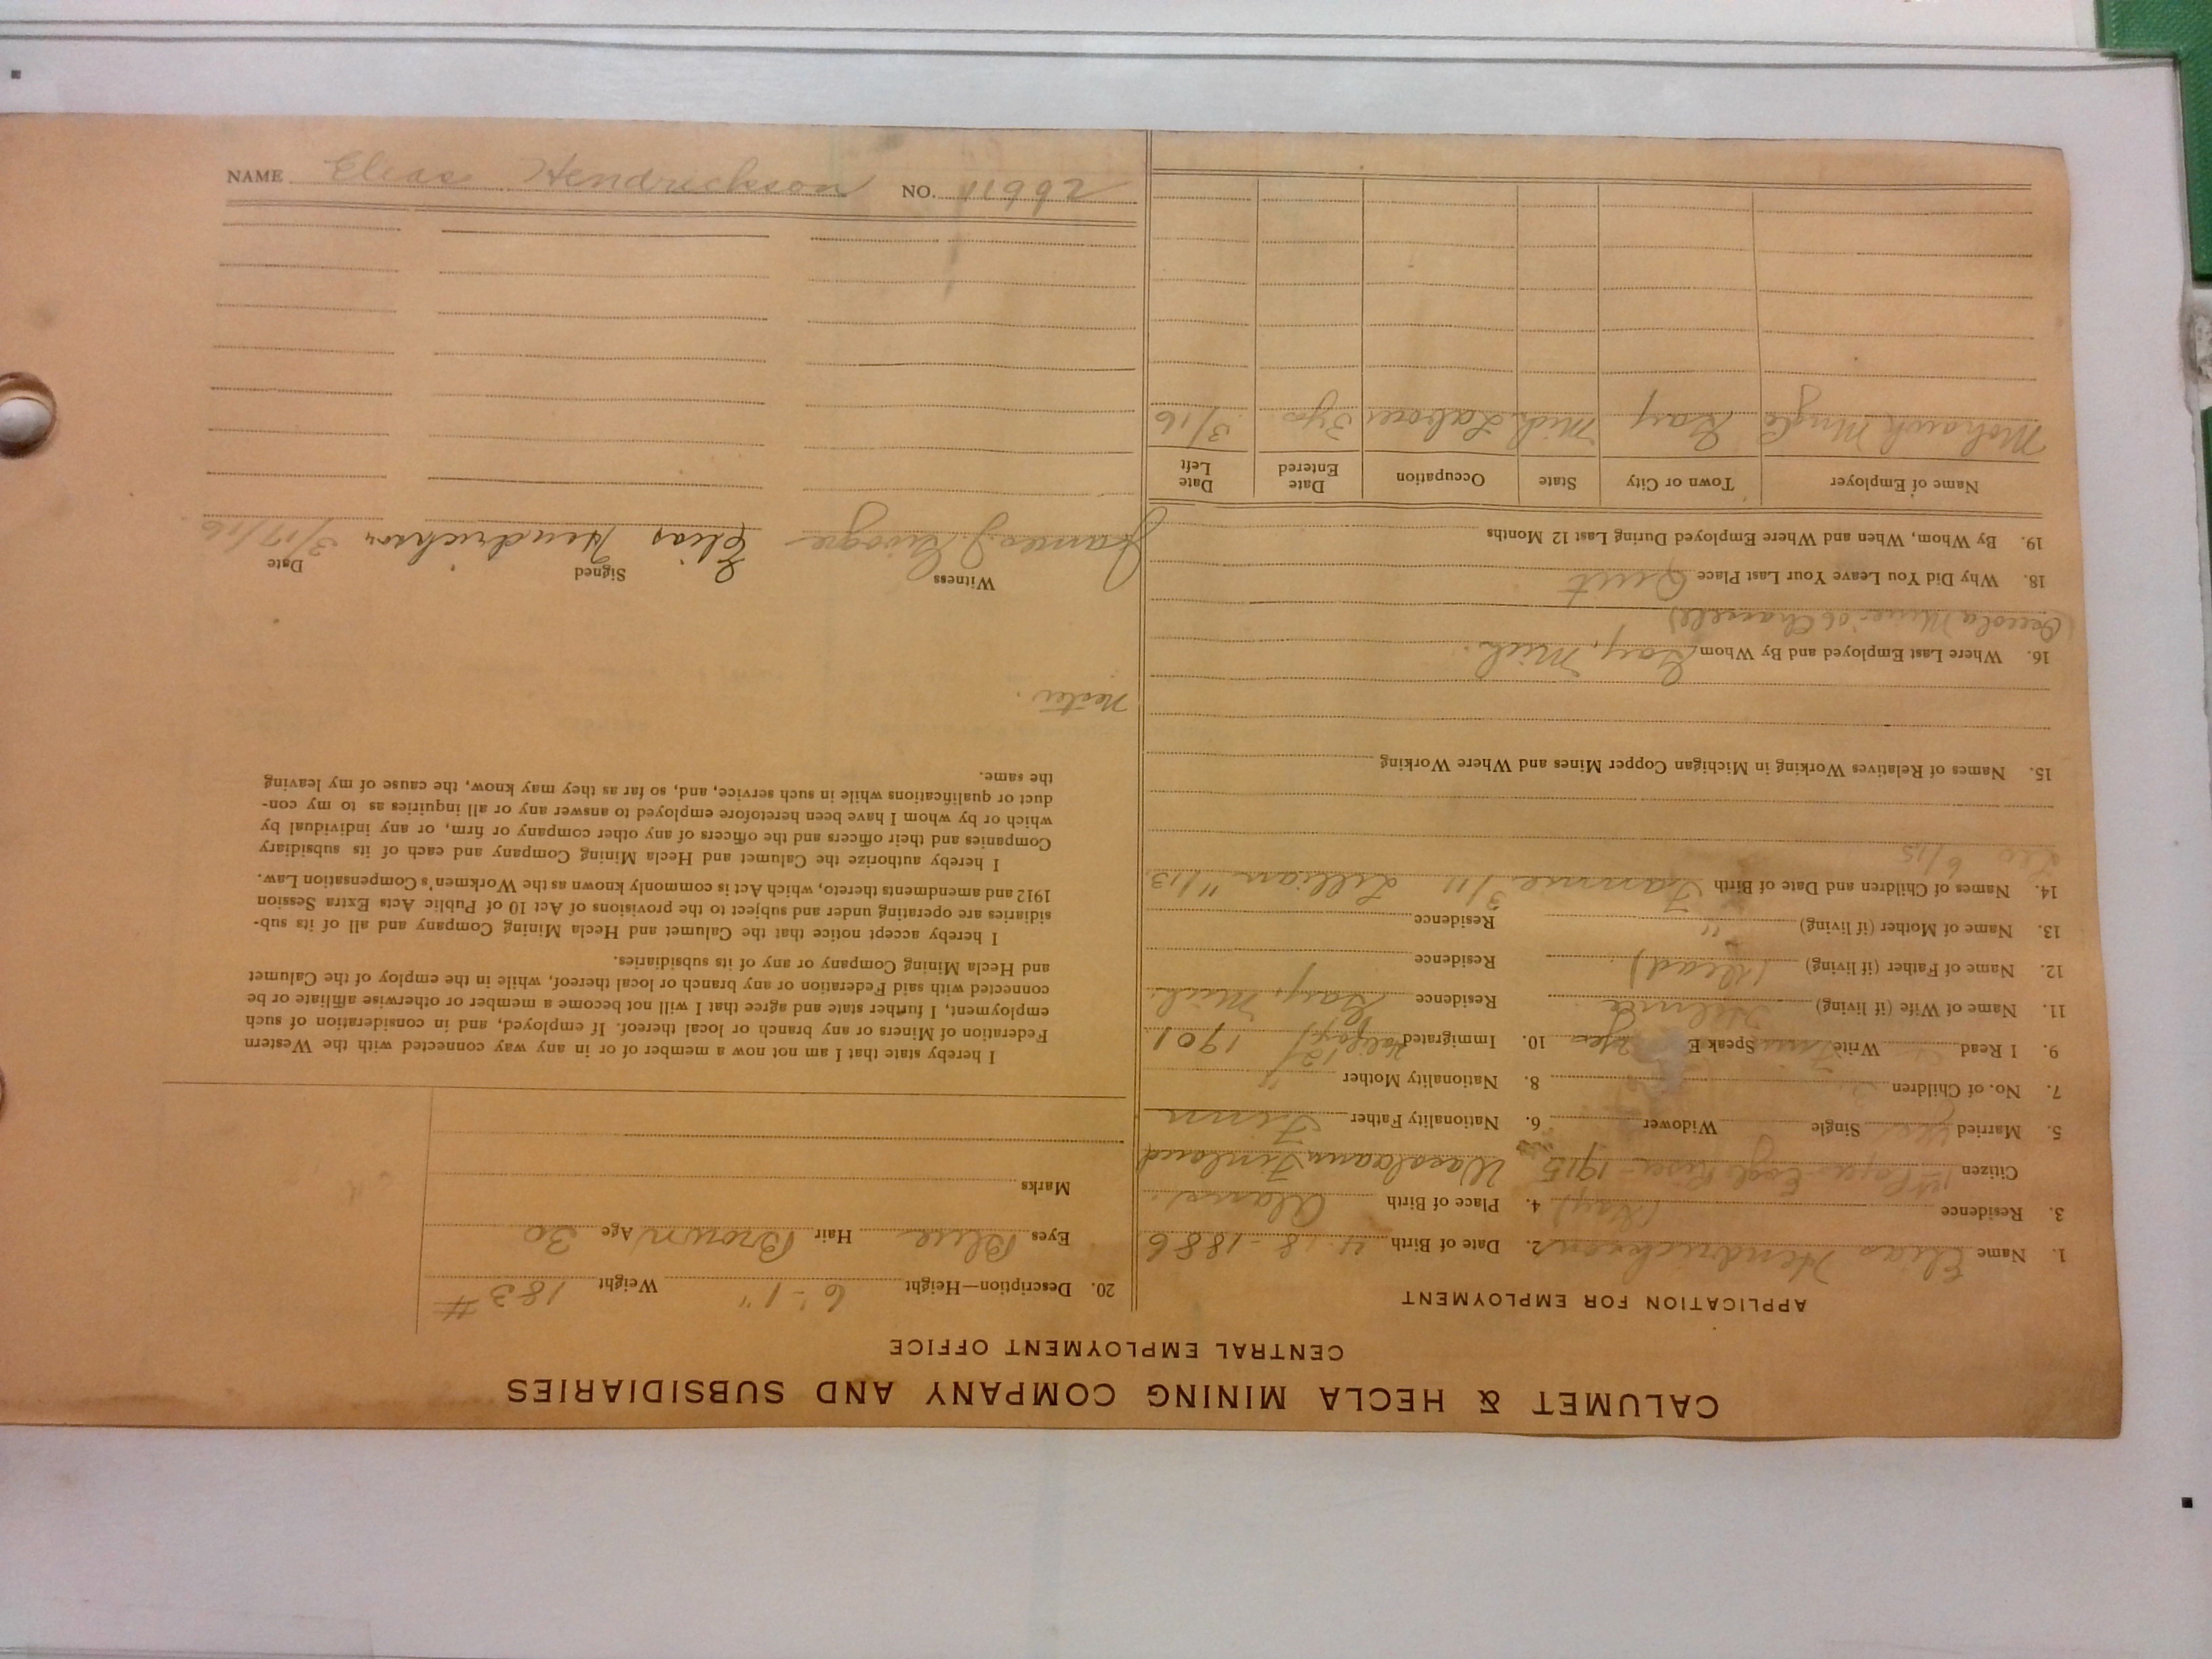 CALUMET & HECLA MINING COMPANY AND SUBSIDIARIES
CENTRAL EMPLOYMENT OFFICE
APPLICATION FOR EMPLOYMENT
1. Name Elias Hendrickson 2. Date of Birth 4-18-1886
3. Residence (Gay) 4. Place of Birth
Citizen 1st Paper Eagle River - 1915 Finland
5. Married Yes Single Widower 6. Nationality Father Finn
7. No. of Children 8. Nationality Mother "
9. I Read Write Finn Speak E Yes 10. Immigrated Halifax 1901
11. Name of Wife (if living) Residence Gay, Mich.
12. Name of Father (if living) (dead) Residence
13. Name of Mother (if living) " Residence
14. Names of Children and Date of Birth Fannie 3/11 Lillian 11/13
Leo 6/15
15. Names of Relatives Working in Michigan Copper Mines and Where Working
16. Where Last Employed and By Whom Gay, Mich.
(Osceola Mine '06
18. Why Did You Leave Your Last Place Quit
19. By Whom, When and Where Employed During Last 12 Months
Name of Employer Town or City State Occupation Date Entered Date Left
Mohawk Mng Co Gay Mich. Laborer 3 yrs 3/16
20. Description—Height 6'-1" Weight 183 #
Eyes Blue Hair Brown Age 30
Marks
I hereby state that I am not now a member of or in any way connected with the Western
Federation of Miners or any branch or local thereof. If employed, and in consideration of such
employment, I further state and agree that I will not become a member or otherwise affiliate or be
connected with said Federation or any branch or local thereof, while in the employ of the Calumet
and Hecla Mining Company or any of its subsidiaries.
I hereby accept notice that the Calumet and Hecla Mining Company and all of its sub-
sidiaries are operating under and subject to the provisions of Act 10 of Public Acts Extra Session
1912 and amendments thereto, which Act is commonly known as the Workmen's Compensation Law.
I hereby authorize the Calumet and Hecla Mining Company and each of its subsidiary
Companies and their officers and the officers of any other company or firm, or any individual by
which or by whom I have been heretofore employed to answer any or all inquiries as to my con-
duct or qualifications while in such service, and, so far as they may know, the cause of my leaving
the same.
Witness Signed Date
James Elias Hendrickson 3/17/16
NAME Elias Hendrickson NO. 11992